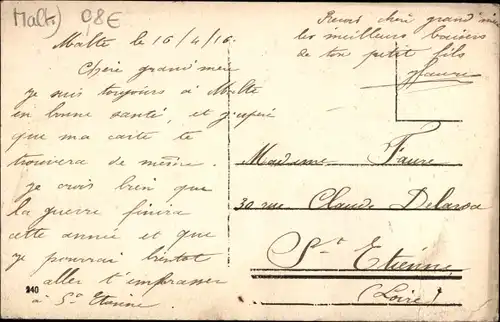 Malte) 08E
Malte le 16/4/16.
Chère grand'mère
je suis toujours à Malte
en bonne santé, et j'espère
que ma carte te
trouvera de même.
je crois bien que
la guerre finira
cette année et que
je pourrai bientot
aller t'embrasser
à St Etienne
Reçois chère grand'mère
les meilleurs baisers
de ton petit fils
JFaure
Madame Faure
30 rue Claude Delaroa
St Etienne
(Loire)
240